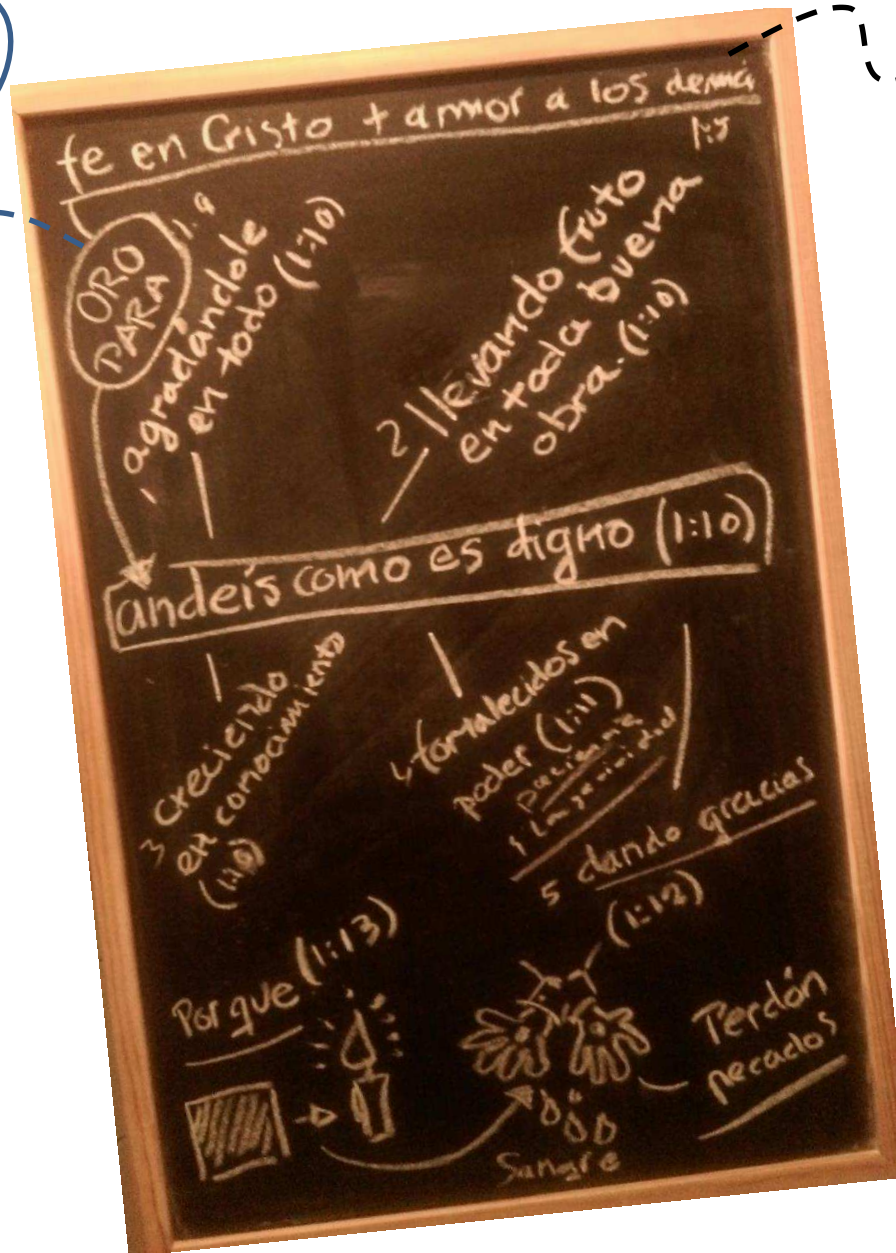 fe en Cristo + amor a los demás
1:8
ORO
PARA
1:9
1 agradándole
en todo (1:10)
2 llevando fruto
en toda buena
obra. (1:10)
andeis como es digno (1:10)
3 creciendo
en conocimiento
(1:10)
4 fortalecidos en
poder (1:11)
paciencia
y longanimidad
5 dando gracias
(1:12)
Por que (1:13)
Perdón
pecados
Sangre